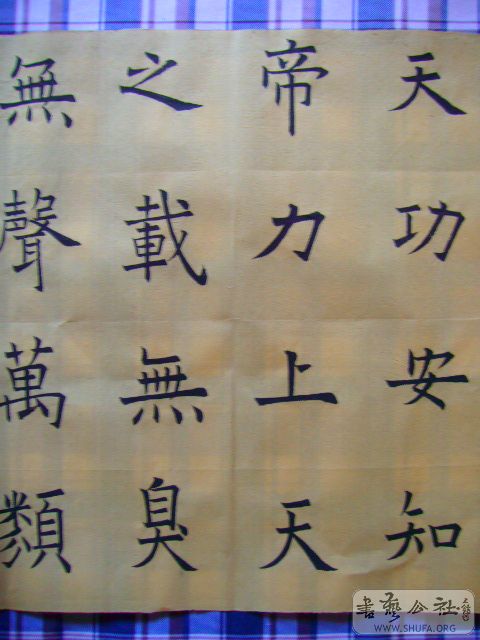 天功安知
帝力上天
之載無臭
無聲萬類
書藝公社
WWW.SHUFA.ORG